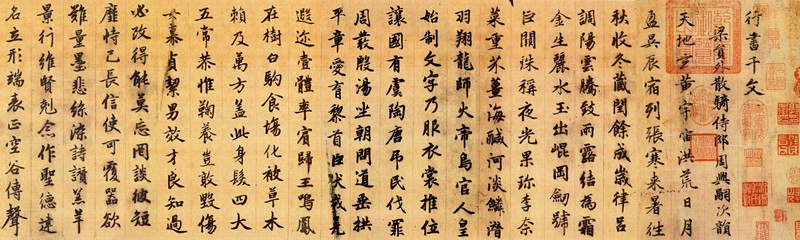 行書千文
梁員外散騎侍郎周興嗣次韻
天地玄黃宇宙洪荒日月
盈昃辰宿列張寒来暑往
秋收冬藏閏餘成歲律呂
調陽雲騰致雨露結為霜
金生麗水玉出崐岡劒號
巨闕珠稱夜光果珎李柰
菜重芥薑海鹹河淡鱗潛
羽翔龍師火帝鳥官人皇
始制文字乃服衣裳推位
讓國有虞陶唐弔民伐罪
周發殷湯坐朝問道垂拱
平章愛育黎首臣伏戎羌
遐迩壹體率賓歸王鳴鳳
在樹白駒食塲化被草木
賴及萬方蓋此身髮四大
五常恭惟鞠養豈敢毀傷
女慕貞絜男效才良知過
必改得能莫忘罔談彼短
靡恃己長信使可覆器欲
難量墨悲絲染詩讚羔羊
景行維賢剋念作聖德建
名立形端表正空谷傳聲